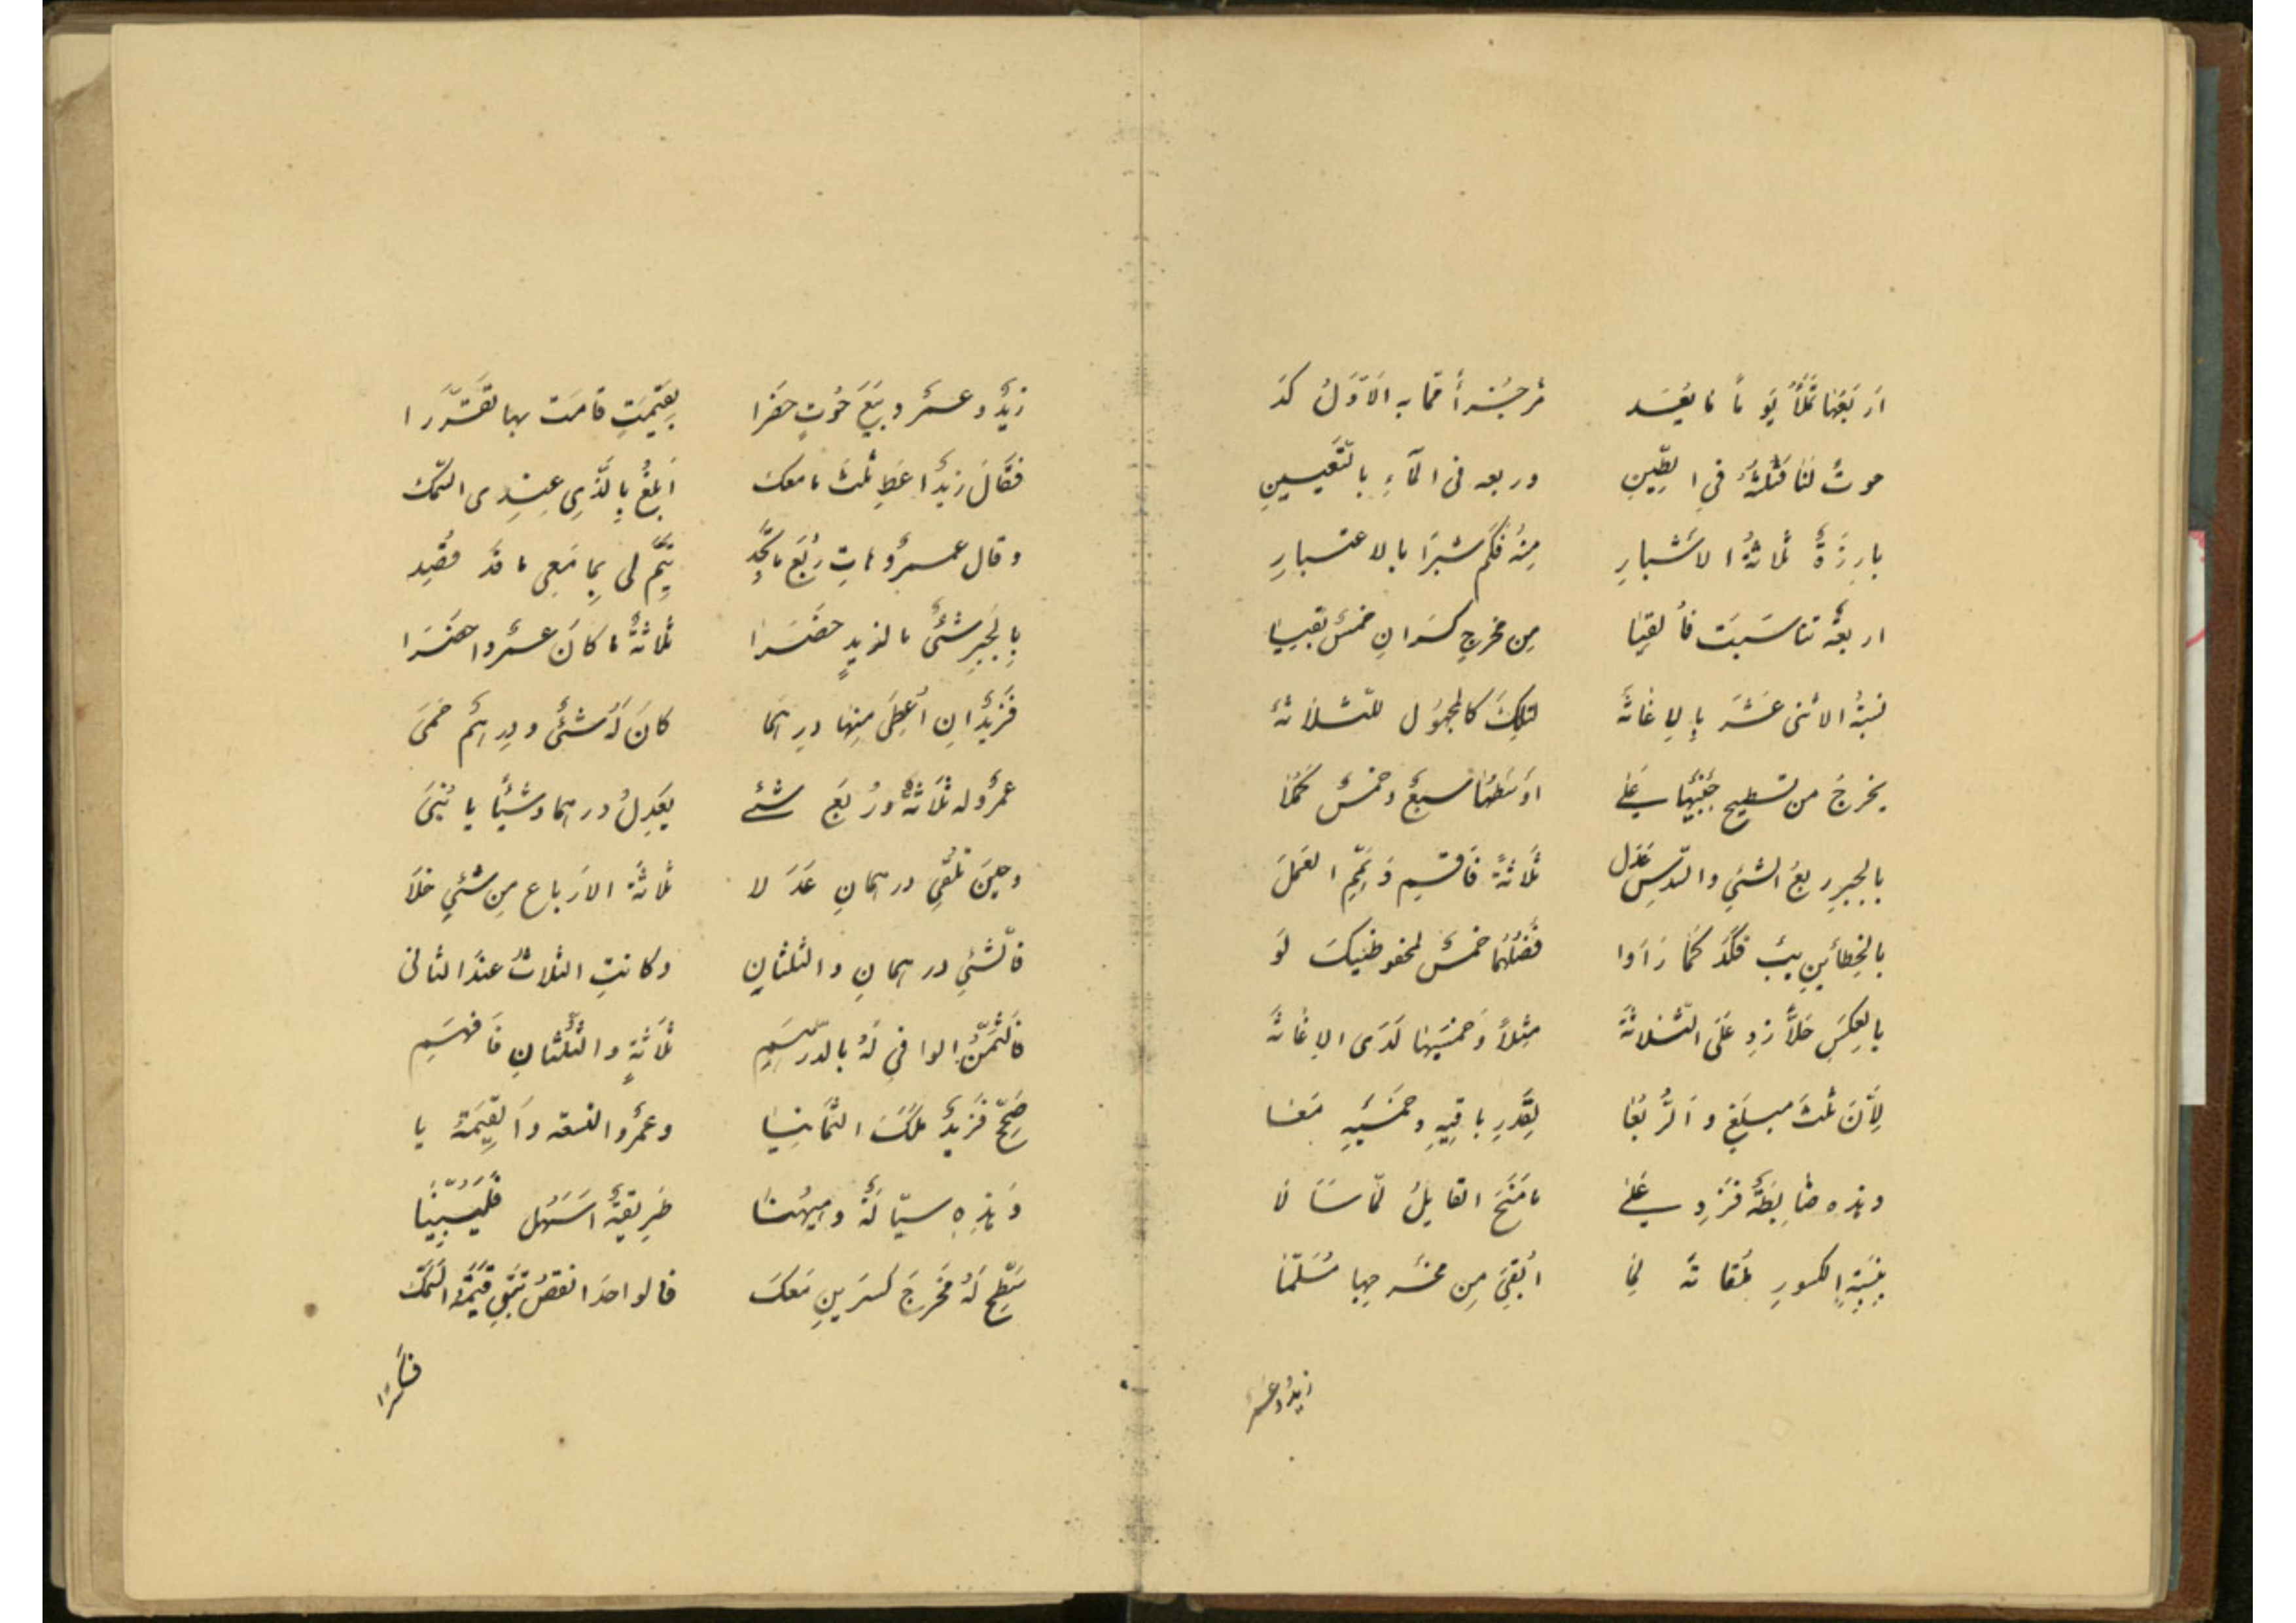 اَربَعُهَا تَمْلَأُ يَومًا مَا يُعَد مِن جُزءٍ مِمّا بِهِ الاَوَّلُ كَد
حوتٌ لَنَا ثُلثُهُ فِي الطِّينِ وربعه فى المآءِ بِالتَّعيينِ
بارِزَةٌ ثَلاثَةُ الاَشبارِ مِنهُ فَكَم شِبرًا بالاعتبارِ
اربعةٌ تناسَبَت فألقِيا مِن مخرجِ كسران خمسٌ بَقِيا
نسبةُ الاثنى عَشَرَ بِالِاغاثَة لتلكَ كالمجهُولِ للثلاثَة
يخرجُ من تسطيح جَنبَيها عَلى اوسَطِها سبعٌ وخمسٌ كَمُلا
بالجبرِ ربعُ الشئِ والسّدسِ عَدَل ثلاثةً فَاقسِم وَتَمِّمِ العَمَل
بالخطأينِ فَضلُهُما خمسٌ لمحفوظيكَ لَو
بالعكسِ خَلًّا زِد عَلَى الثَّلاثَة مِثلًا وَخُمسَيها لَدَى الاِغاثَة
لِأَنَّ ثُلثَ مبلَغٍ وَالرُّبُعَا بِقَدرِ باقِيهِ وخُمسَيهِ مَعَا
وهذه ضابِطَةٌ فَزِد عَلى مَا مَنَحَ القائِلُ لمّا سَألا
بِنِسبَةِ الكسورِ مُلقاةً لِما اُبقِىَ مِن مخرجها مُسَلَّمَا
زيدٌ وعمر
زيدٌ وعمرٌو بَيعَ حُوتٍ حضَرا بِقيمَتٍ قامَت بها تَقَرَّرا
فَقالَ زيدٌ اعطِ ثُلثَ مامعك اَبلُغُ بِالَّذِى عِندِى السَّمَك
وقال عمرٌو هاتِ رُبعَ ماتَجِد يَتِمُّ لى بِما مَعِى ما قَد قُصِد
بِالجَبرِ شئٌ ما لزيدٍ حضَرا ثلاثةٌ ما كانَ عمرٌو احضَرا
فَزيدٌ ان اُعطِىَ مِنها درهما كانَ لَهُ شئٌ ودرهمٌ حَمَى
عمرٌو له ثَلاثَةٌ ورُبعُ شئ يَعدِلُ درهما وشَيئًا يا بُنَىَّ
وحينَ تُلقِى درهمانِ عَدَلا ثَلاثَةَ الارباع مِن شئٍ خَلَا
فالشئِ درهمانِ والثلثانِ وكانتِ الثلاثُ عندَ الثانى
فَالثَّمَنُ الوافِى لَهُ بالدِّرهَمِ ثلاثةٍ والثُّلثانِ فَافهَمِ
صَحِّح فَزيدٌ مَلَكَ الثَّمانيا وعمرٌو التسعة وَالقِيمَةُ يا
وَهذِهِ سيّالَةٌ وهيهُنا طَرِيقةٌ اَسهَل فَليُبيَّنا
سَطِّح لَهُ مَخرَجَ كَسرَينِ مَعَك فالواحدَ انقصُ تبقِ قيمةُ السَّمَك